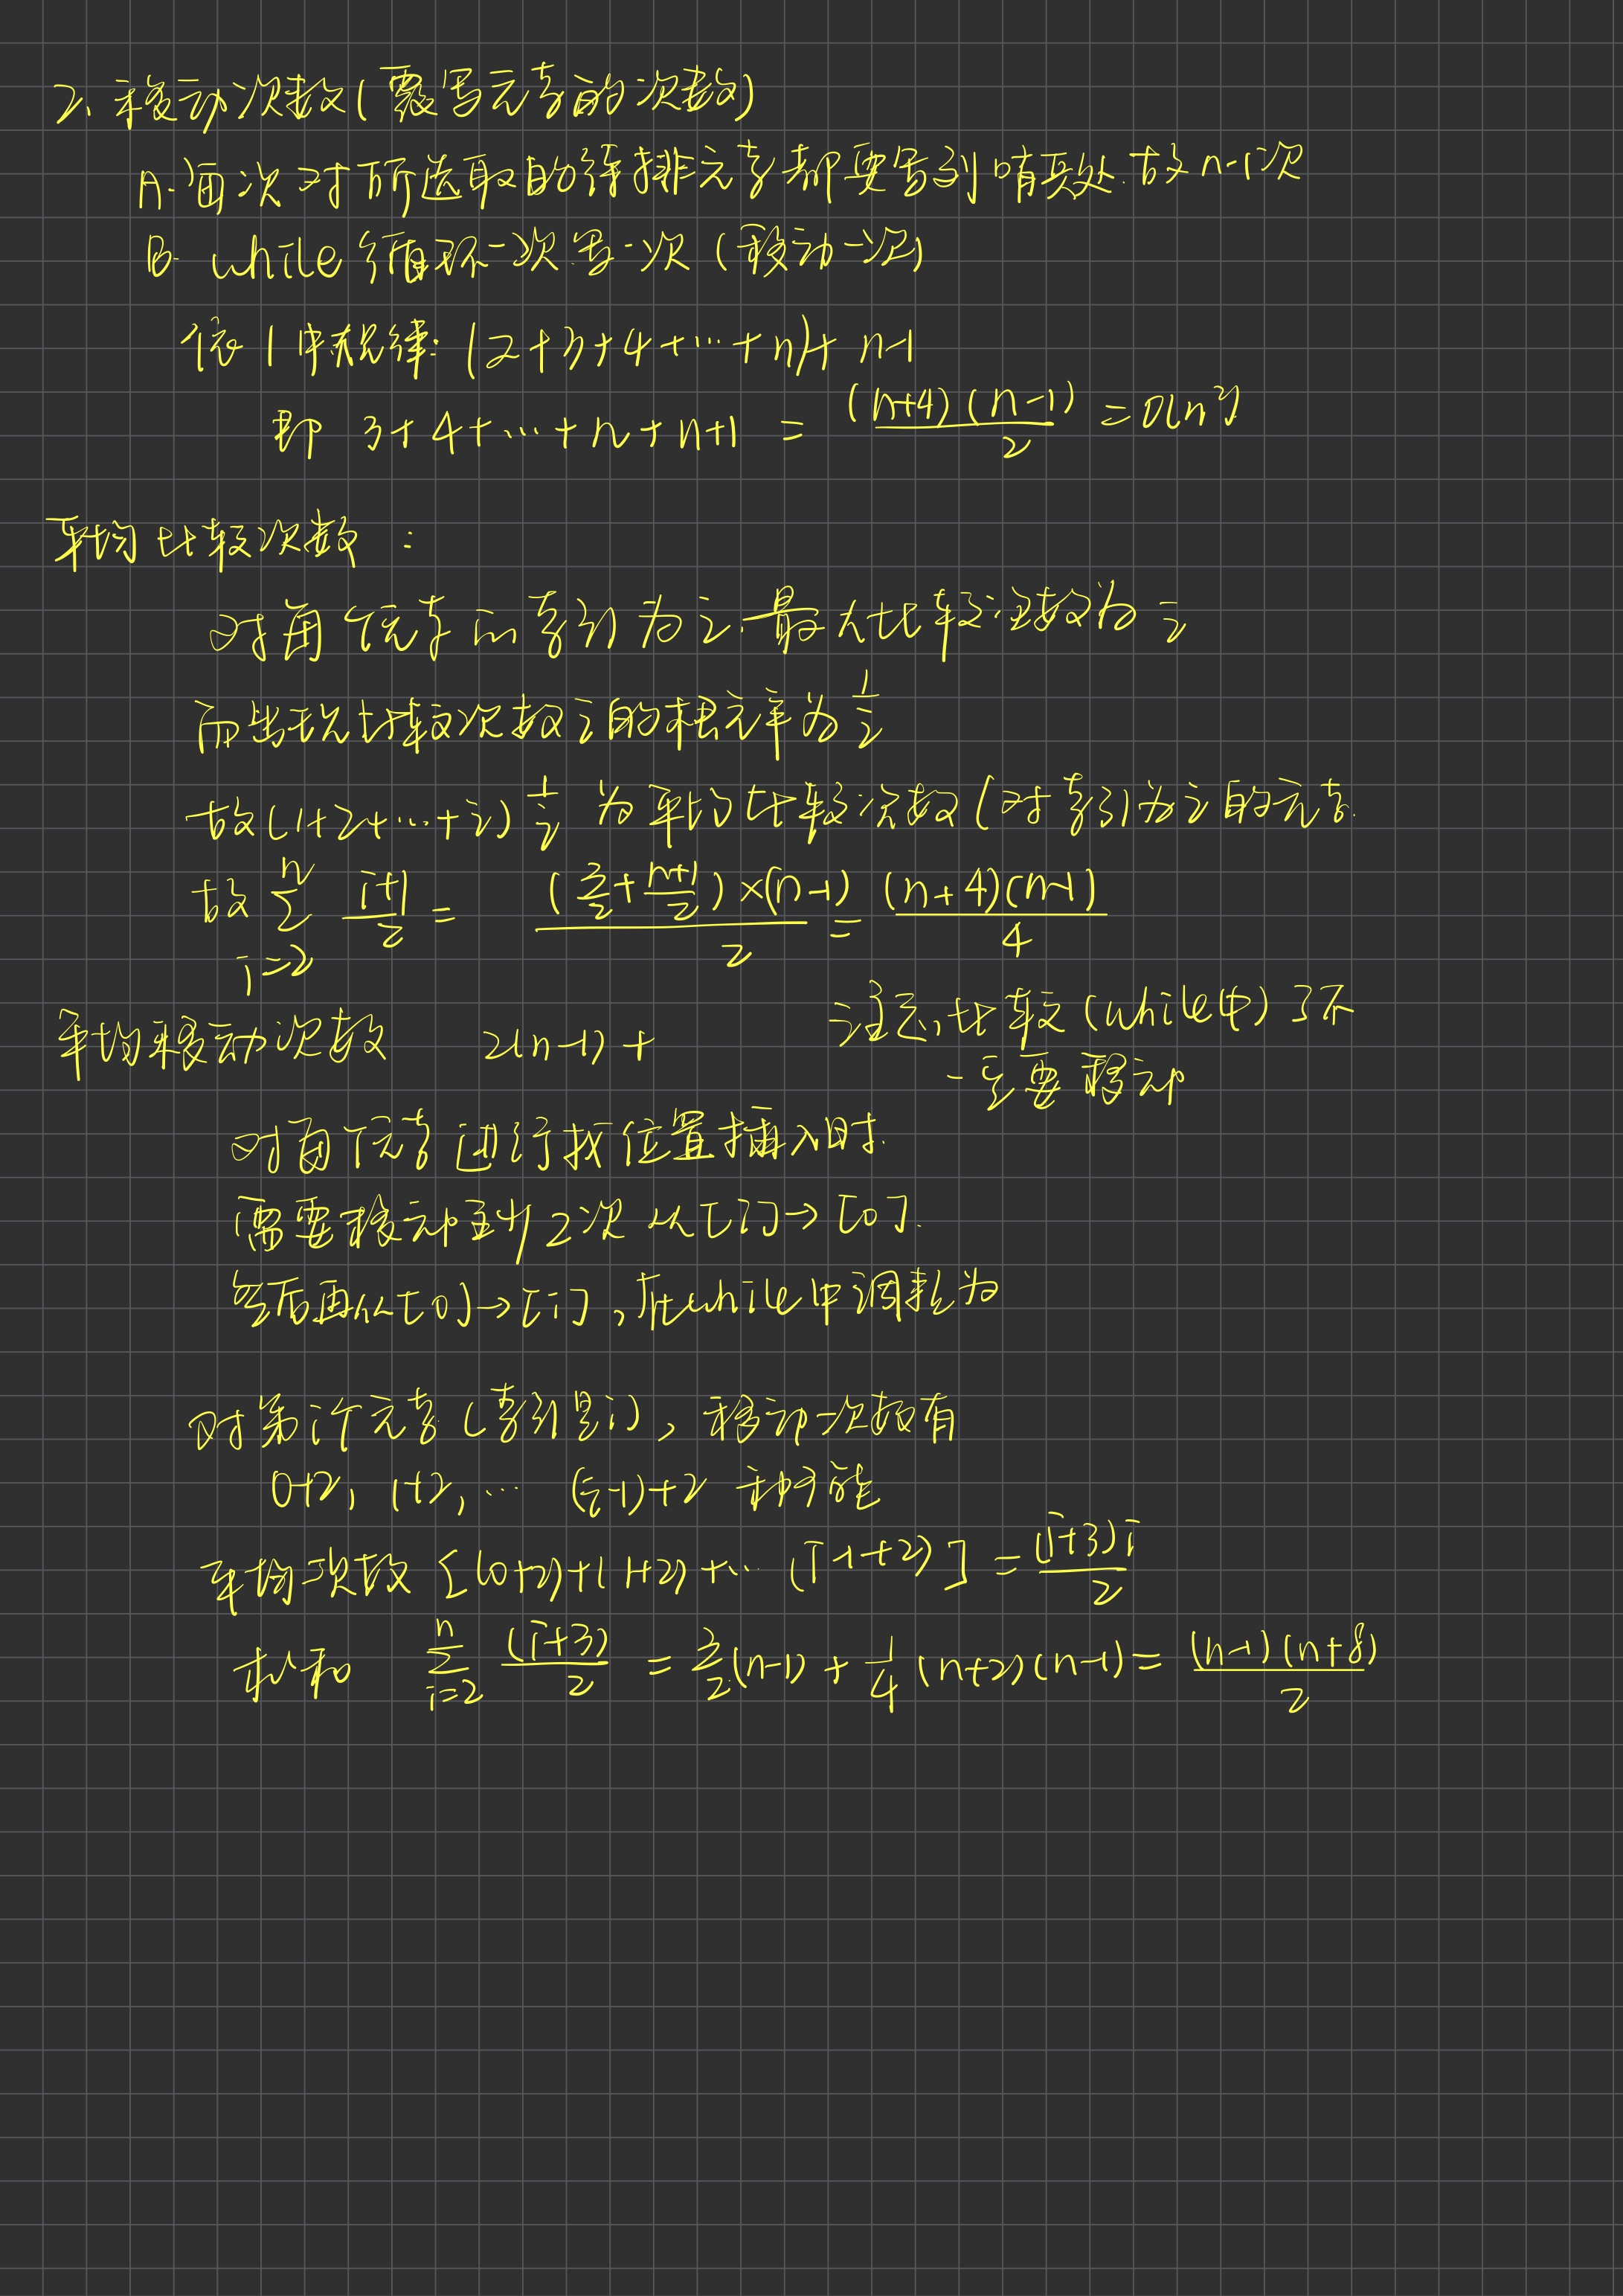 2、移动次数(覆写元素的次数)
A. 每次对所选取的待排元素都要写到哨兵处.故n-1次
B. while循环一次写一次(移动一次)
依1中规律: (2+3+4+…+n)+n-1
即 3+4+…+n+n+1 = (n+4)(n-1)/2 = O(n²)
平均比较次数:
对每个元素的索引为i,最大比较次数为i
而出现比较次数i的概率为1/i
故(1+2+…+i)1/i 为平均比较次数(对索引为i的元素.
故 ∑_{i=2}^{n} (i+1)/2 = ((3/2+(n+1)/2)×(n-1))/2 = (n+4)(n-1)/4
平均移动次数 2(n-1)+
注意,比较(while中)了不
一定要移动
对每个元素进行找位置插入时.
需要移动至少2次 从[i]→[0].
然后再从[0]→[i],在while中调整为
对第i个元素(索引是i),移动次数有
0+2, 1+2,… (i-1)+2 种可能
平均次数 [(0+2)+(1+2)+…(i-1+2)] = (i+3)i/2
求和 ∑_{i=2}^{n} (i+3)/2 = 3/2(n-1)+1/4(n+2)(n-1) = (n-1)(n+8)/2